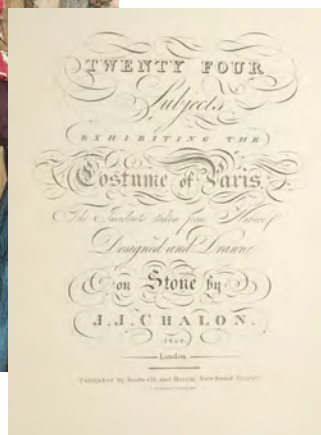 TWENTY FOUR
Subjects
EXHIBITING THE
Costume of Paris.
The Incidents taken from Nature
Designed and Drawn
on Stone by
J.J. CHALON.
London.
Published by Rodwell and Martin New Bond Street